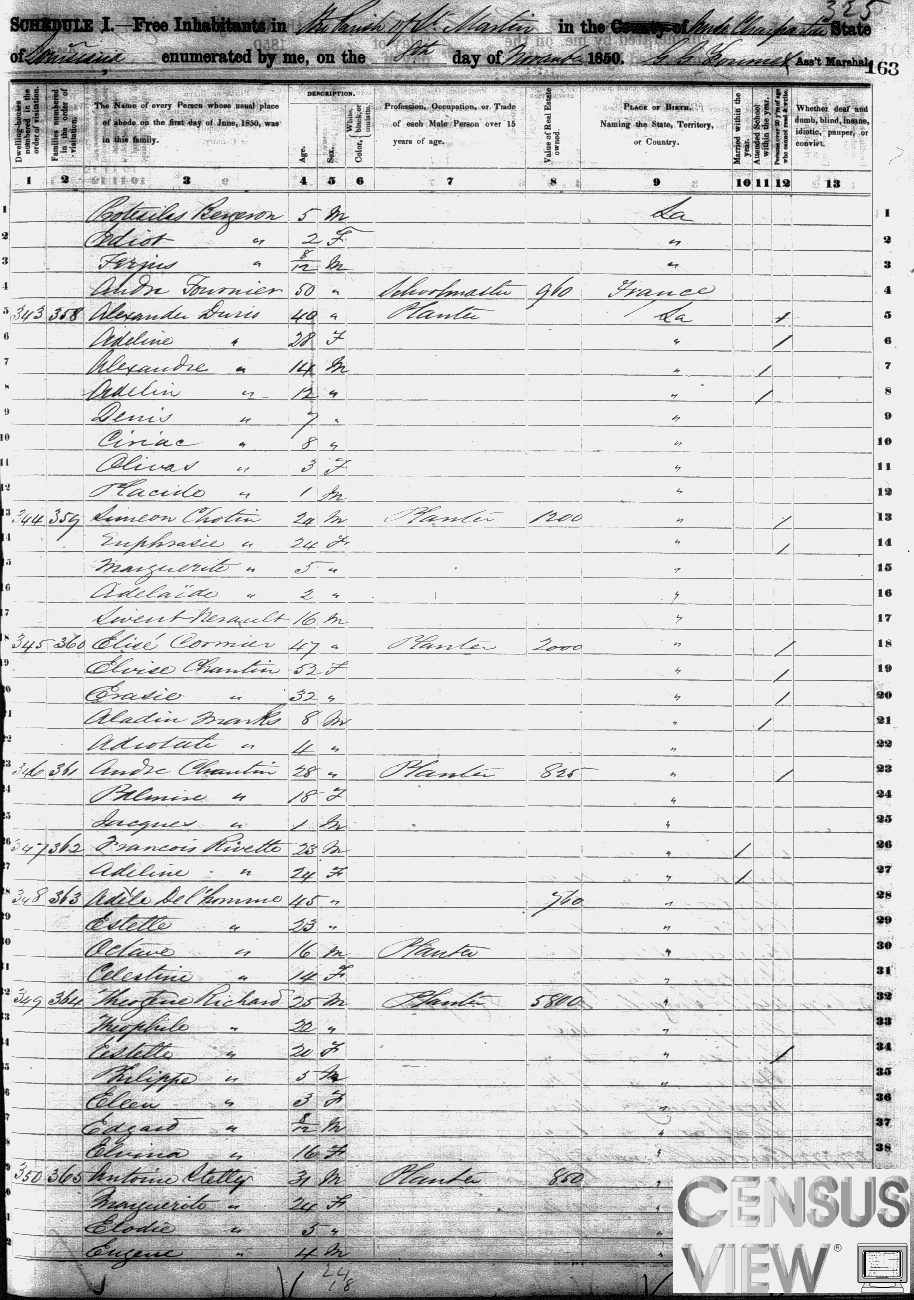 325
SCHEDULE I.—Free Inhabitants in the Parish of St. Martin in the County of State
of Louisiana enumerated by me, on the 8th day of November 1850. Ass't Marshal.
163
Dwelling-houses numbered in the order of visitation.
Families numbered in the order of visitation.
The Name of every Person whose usual place of abode on the first day of June, 1850, was in this family.
DESCRIPTION.
Age.
Sex.
Color, White, black, or mulatto.
Profession, Occupation, or Trade of each Male Person over 15 years of age.
Value of Real Estate owned.
PLACE OF BIRTH. Naming the State, Territory, or Country.
Married within the year.
Attended School within the year.
Persons over 20 y'rs of age who cannot read & write.
Whether deaf and dumb, blind, insane, idiotic, pauper, or convict.
1 2 3 4 5 6 7 8 9 10 11 12 13
1 Protesilas Bergeron 5 M La 1
2 " 2 F " 2
3 Ferjus " 8/12 M " 3
4 Andre Fournier 50 " Schoolmaster 960 France 4
5 343 358 Alexander Durio 40 " Planter La / 5
6 Adeline " 28 F " / 6
7 Alexandre " 14 M " / 7
8 Adelin " 12 " " / 8
9 Denis " 7 " " 9
10 Ciriac " 8 " " 10
11 Olivas " 3 F " 11
12 Placide " 1 M " 12
13 344 359 Simeon Chotin 29 M Planter 1200 " / 13
14 Euphrasie " 24 F " / 14
15 Marguerite " 5 " " 15
16 Adelaïde " 2 " " 16
17 16 M 17
18 345 360 Elisé Cormier 47 " Planter 2000 " / 18
19 Eloise Chantin 52 F " / 19
20 Erasie " 32 " " / 20
21 Aladin Marks 8 M " / 21
22 " 4 " " 22
23 346 361 Andre Chantin 28 " Planter 825 " / 23
24 Palmire " 18 F " 24
25 Jacques " 1 M " 25
26 347 362 Francois Rivette 23 M " / 26
27 Adeline " 24 F " / 27
28 348 363 Adèle Del'homme 45 " 760 " 28
29 Estelle " 23 " " 29
30 Octave " 16 M Planter " 30
31 Celestine " 14 F " 31
32 349 364 Theogène Richard 25 M Planter 5800 " 32
33 Theophile " 20 " " 33
34 Estelle " 20 F " / 34
35 Philippe " 5 M " 35
36 Eleen " 3 F " 36
37 Edgard " 8/12 M " 37
38 Elvina " 16 F " 38
350 365 Antoine Stelly 31 M Planter 850 "
Marguerite " 24 F "
Elodie " 5 " "
Eugene " 4 M "
24
18
CENSUS
VIEW®